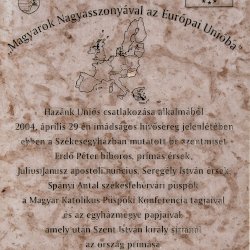 Magyarok Nagyasszonyával az Európai Unióba
Hazánk Uniós csatlakozása alkalmából
2004. április 29-én imádságos hívősereg jelenlétében
ebben a Székesegyházban mutatott be szentmisét
Erdő Péter bíboros, prímás érsek,
Julius Janusz apostoli nuncius, Seregély István érsek,
Spányi Antal székesfehérvári püspök
a Magyar Katolikus Püspöki Konferencia tagjaival
és az egyházmegye papjaival,
amely után Szent István király sírjánál
az ország prímása